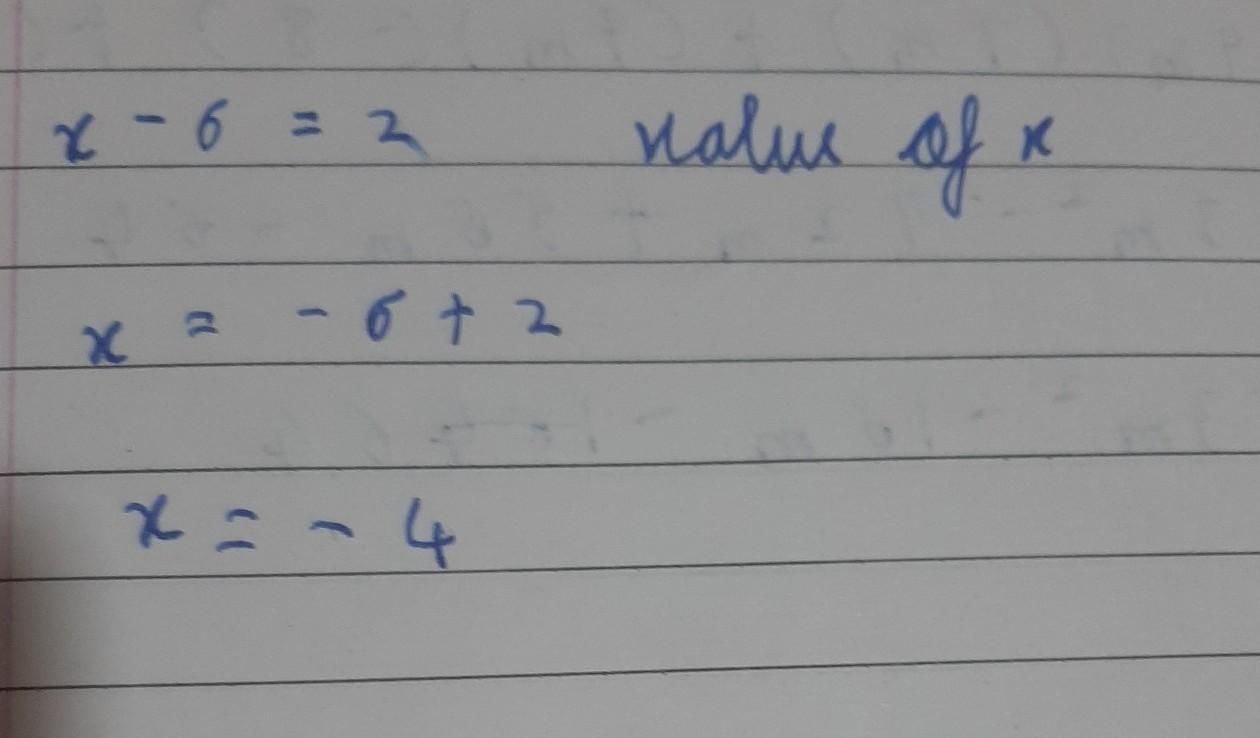 x - 6 = 2 value of x
x = - 6 + 2
x = - 4